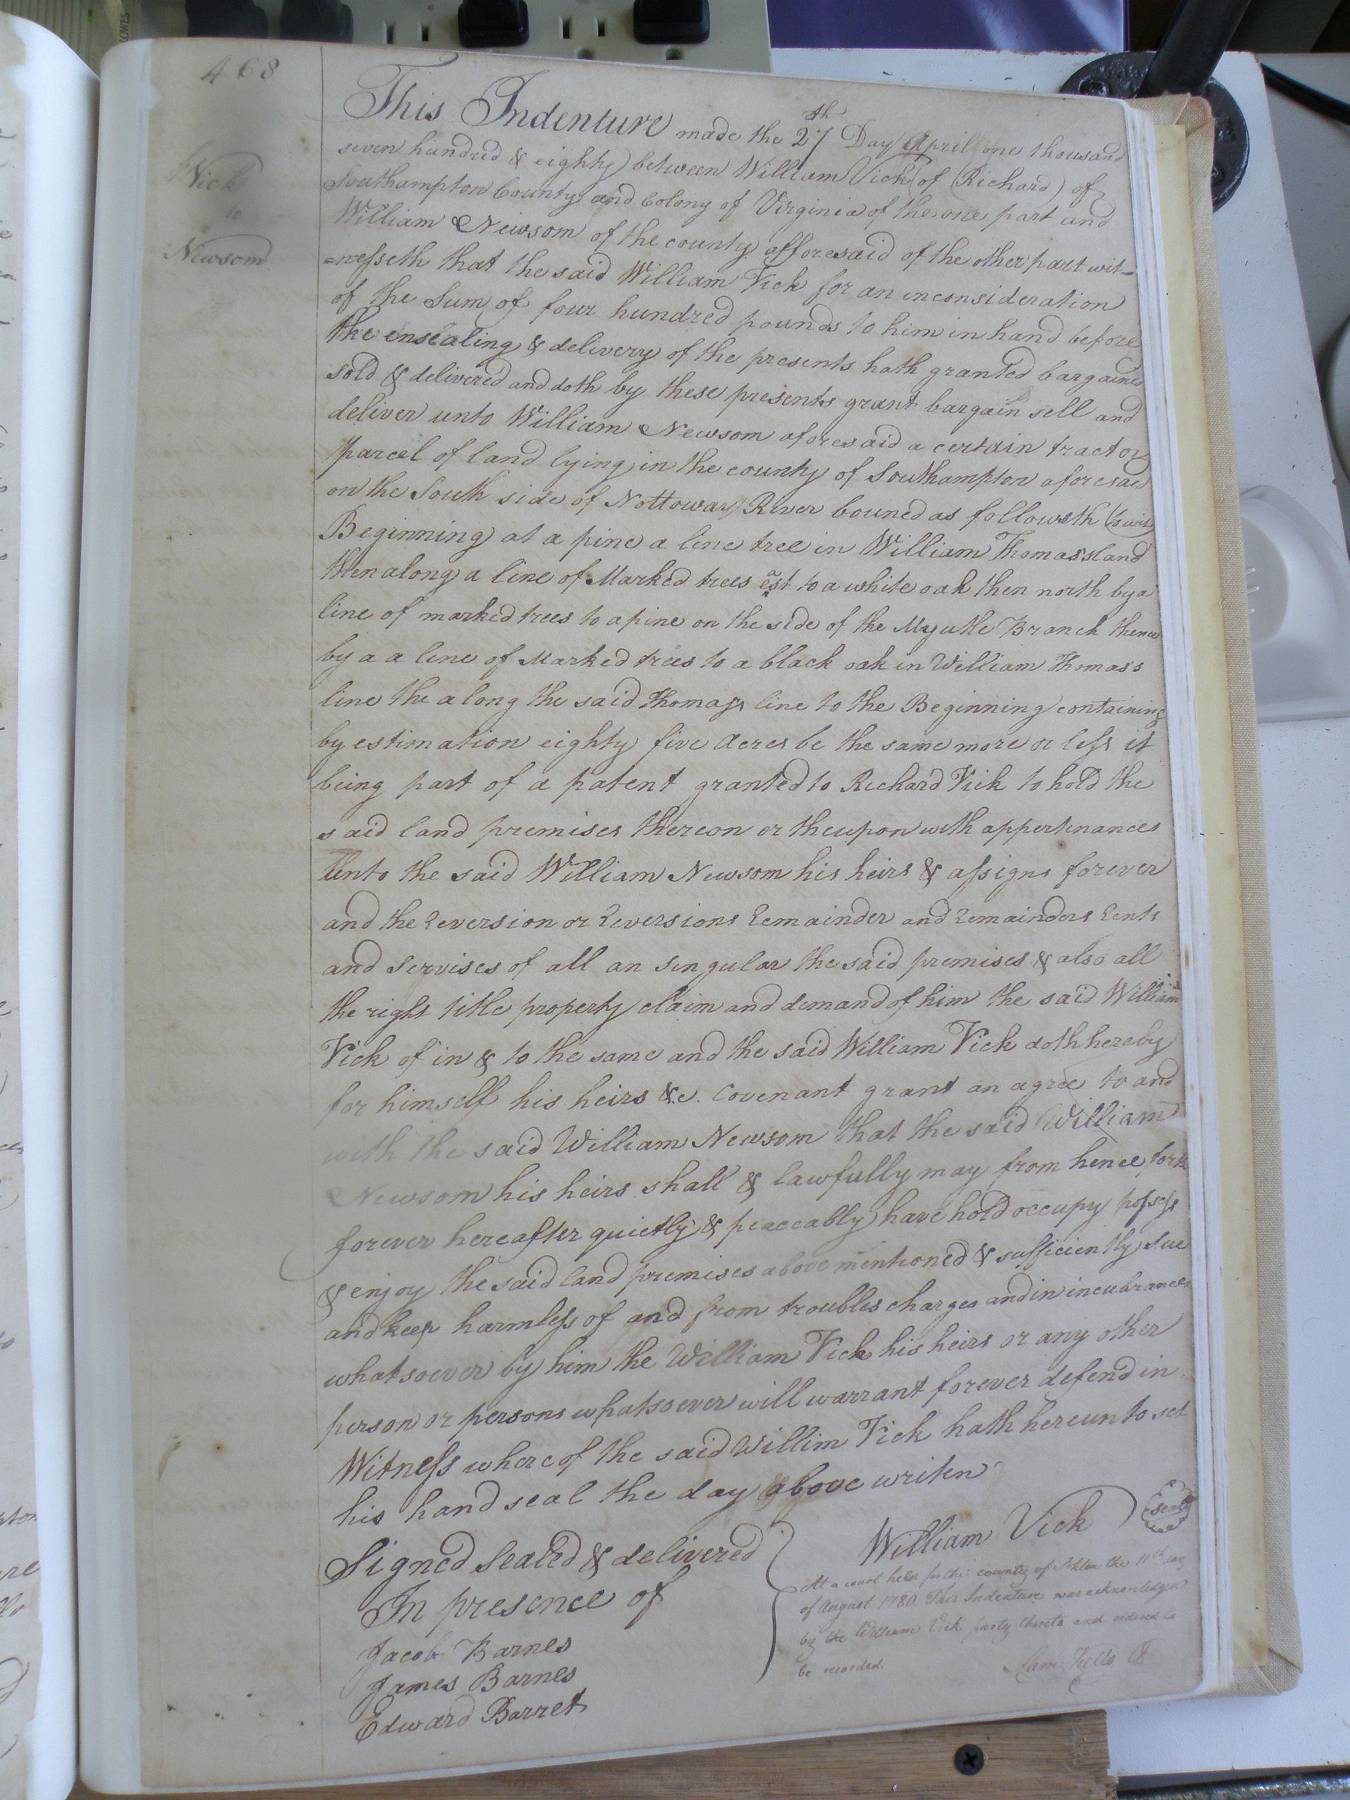 468
Vick
to
Newsom
This Indenture made the 27th Day April one thousand
seven hundred & eighty between William Vick (of Richard) of
Southampton County and Colony of Virginia of the one part and
William Newsom of the county afforesaid of the other part wit-
=nesseth that the said William Vick for an inconsideration
of the Sum of four hundred pounds to him in hand before
the ensealing & delivery of the presents hath granted bargained
sold & delivered and doth by these presents grant bargain sell and
deliver unto William Newsom aforesaid a certain tract or
parcel of land lying in the county of Southampton aforesaid
on the South side of Nottoway River bouned as followeth (to wit)
Beginning at a pine a line tree in William Thomass land
then along a line of Marked trees est to a white oak then north by a
line of marked trees to a pine on the side of the Myatle Branch thence
by a a line of Marked trees to a black oak in William Thomass
line the along the said Thomass line to the Beginning containing
by estimation eighty five acres be the same more or less it
being part of a patent granted to Richard Vick to hold the
said land premises thereon or theupon with appertenances
Unto the said William Newsom his heirs & assigns forever
and the Reversion or Reversions Remainder and Remainders Rents
and servises of all an singular the said premises & also all
the right title property claim and demand of him the said William
Vick of in & to the same and the said William Vick doth hereby
for himself his heirs &c. covenant grant an agree to and
with the said William Newsom that the said William
Newsom his heirs shall & lawfully may from hence forth
forever hereafter quietly & peaceably have hold occupy possess
& enjoy the said land premises above mentioned & sufficiently sue
and keep harmless of and from troubles charges and in incubrances
whatsoever by him the William Vick his heirs or any other
person or persons whatsoever will warrant forever defend in
Witness whereof the said Willim Vick hath hereunto set
his hand seal the day above writen
William Vick seal
Signed Sealed & delivered
In presence of
Jacob Barnes
James Barnes
Edward Barret
At a court held for the county of Sohton the 11th day
of August 1780 This Indenture was acknowledged
by the William Vick party thereto and ordered to
be recorded.
Sam Kello C